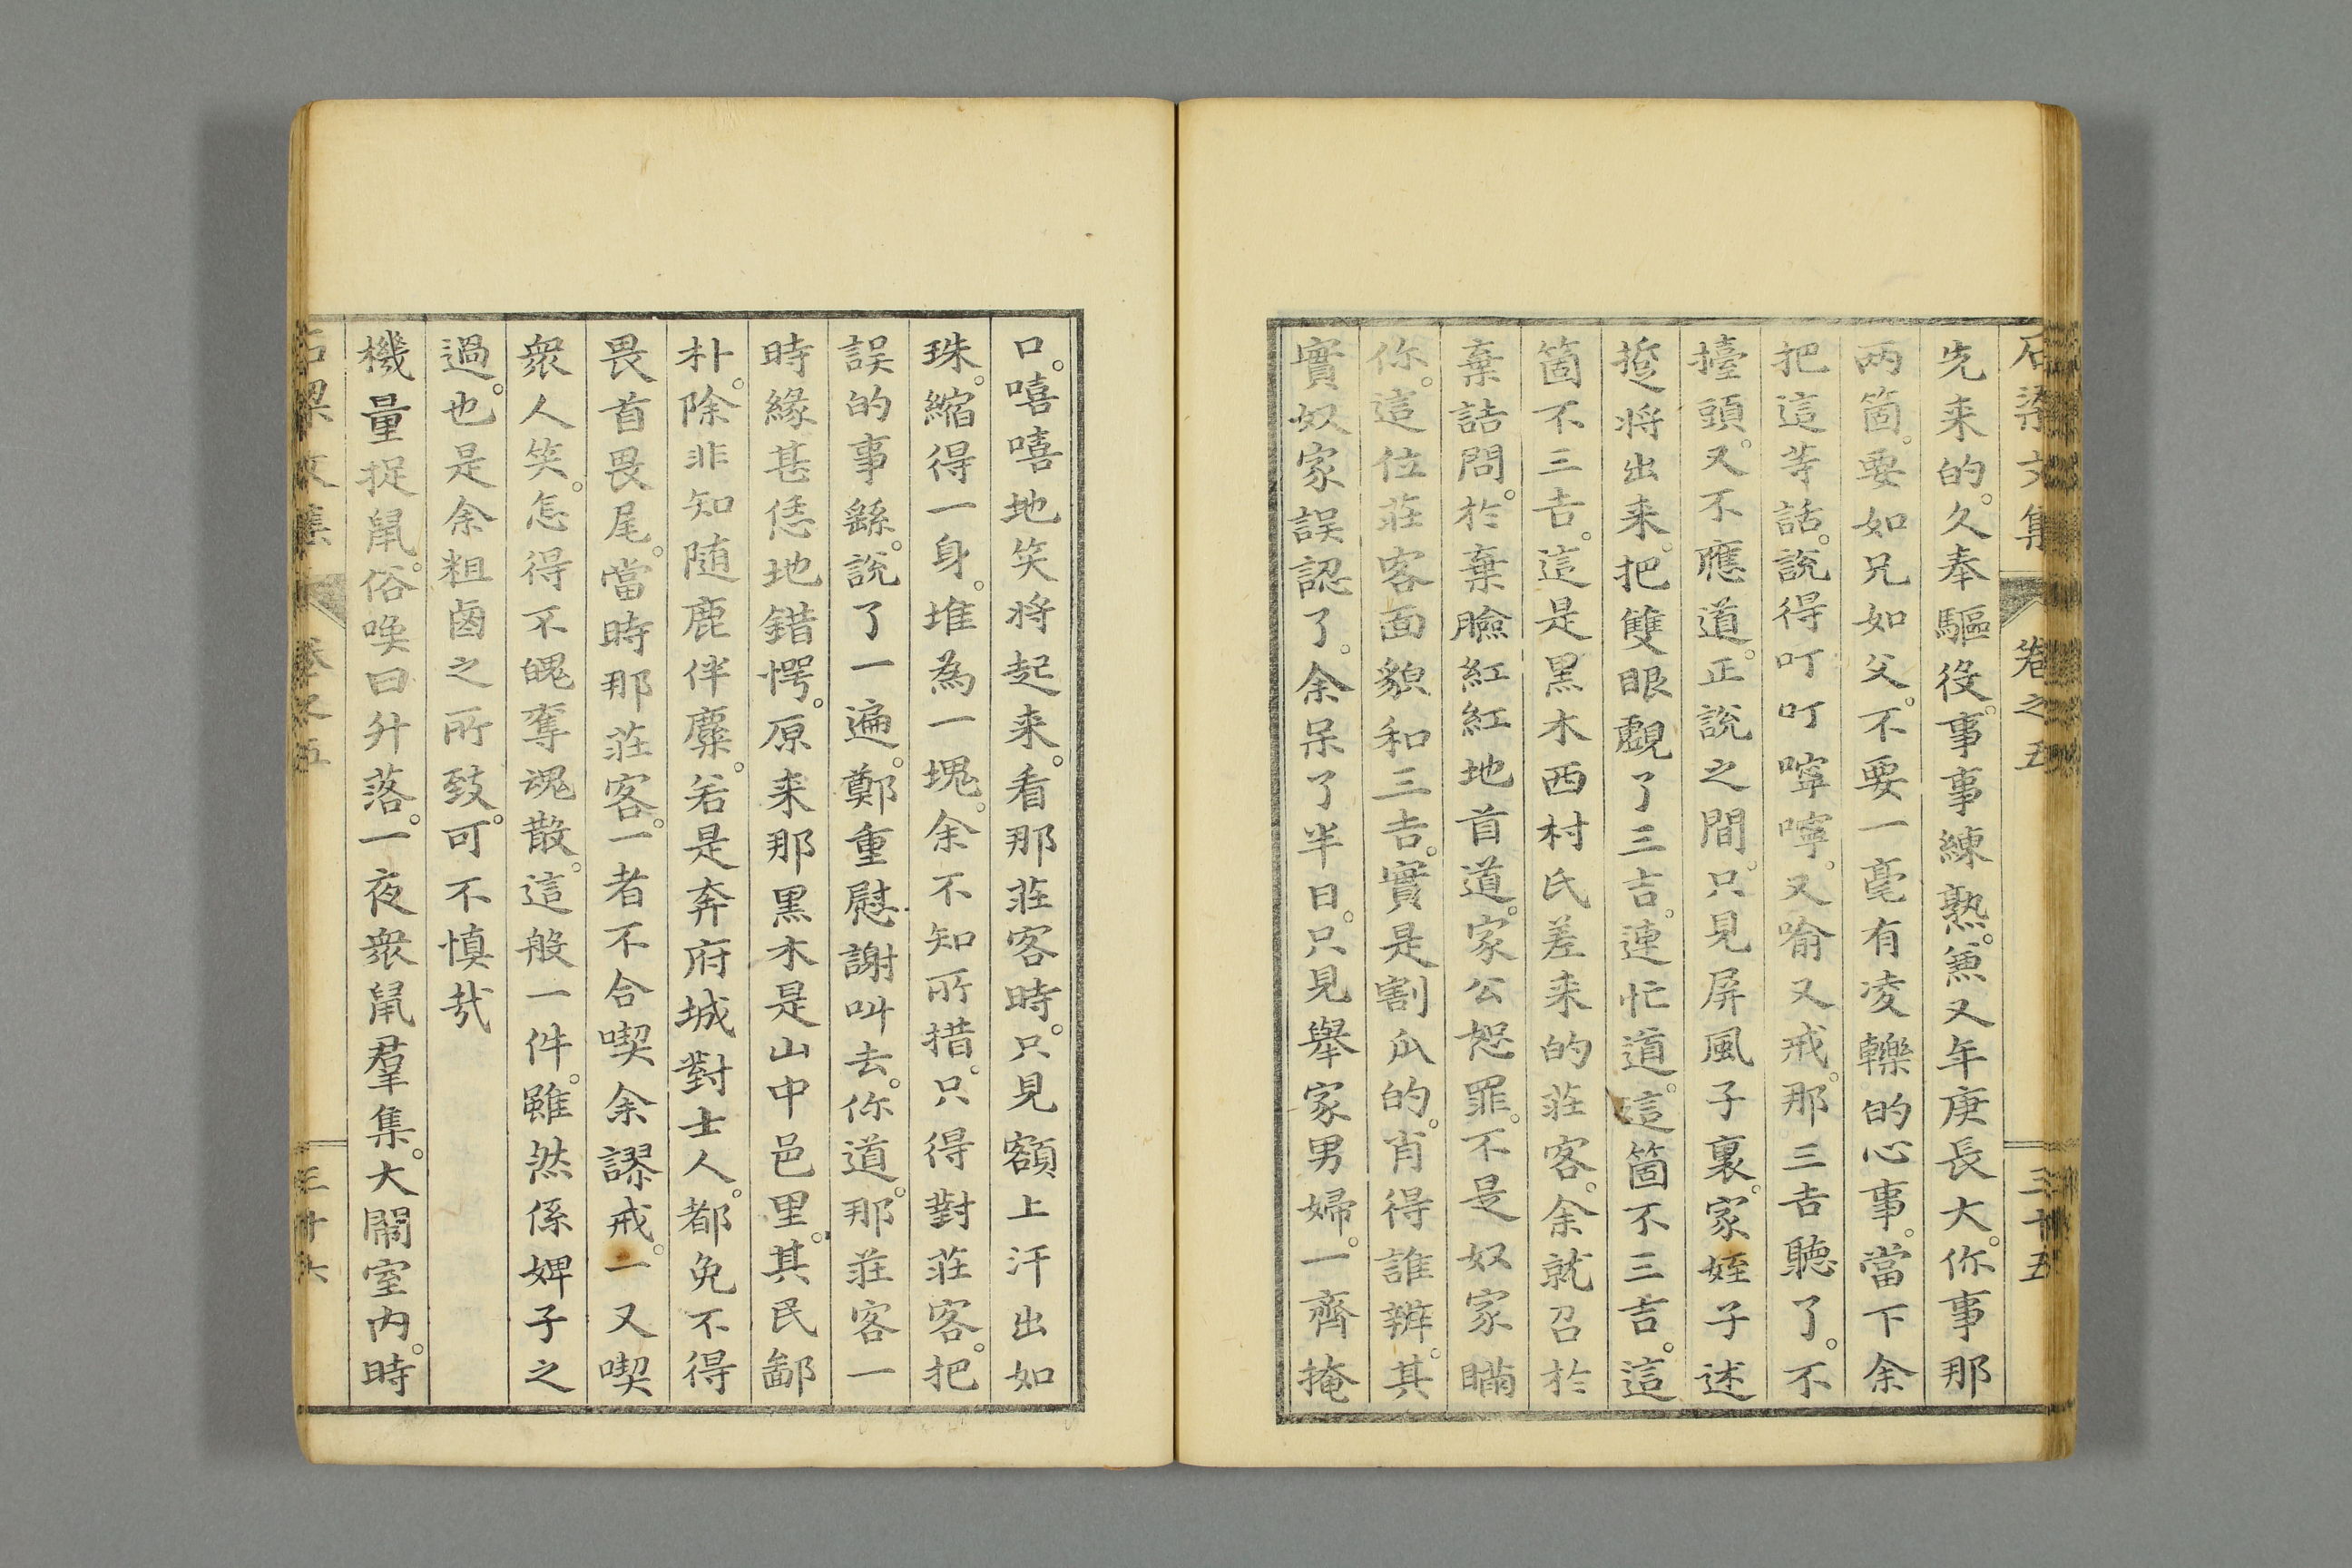 石梁文集 卷之五 三十五
先来的。久奉驅役。事事練熟。兼又年庚長大。你事那
两箇。要如兄如父。不要一毫有凌轢的心事。當下余
把這等話。說得叮叮嚀嚀。又喻又戒。那三吉聽了。不
擡頭。又不應道。正說之間。只見屏風子裏。家姪子述
趲将出来。把雙眼覷了三吉。連忙道。這箇不三吉。這
箇不三吉。這是黑木西村氏差来的莊客。余就召於
棄詰問。於棄臉紅紅地首道。家公恕罪。不是奴家瞞
你。這位莊客面貌和三吉。實是割瓜的。肖得誰辨。其
實奴家誤認了。余呆了半日。只見舉家男婦。一齊掩
口。嘻嘻地笑将起来。看那莊客時。只見額上汗出如
珠。縮得一身。堆為一塊。余不知所措。只得對莊客。把
誤的事繇。說了一遍。鄭重慰謝叫去。你道。那莊客一
時緣甚恁地錯愕。原来那黒木是山中邑里。其民鄙
朴。除非知随鹿伴麋。若是奔府城對士人。都免不得
畏首畏尾。當時那莊客。一者不合喫余謬戒。一又喫
衆人笑。怎得不魄奪魂散。這般一件。雖然係婢子之
過。也是余粗鹵之所致。可不慎哉
機量捉鼠。俗喚曰升落。一夜衆鼠羣集。大鬧室内。時
石梁文集 卷之五 三十六